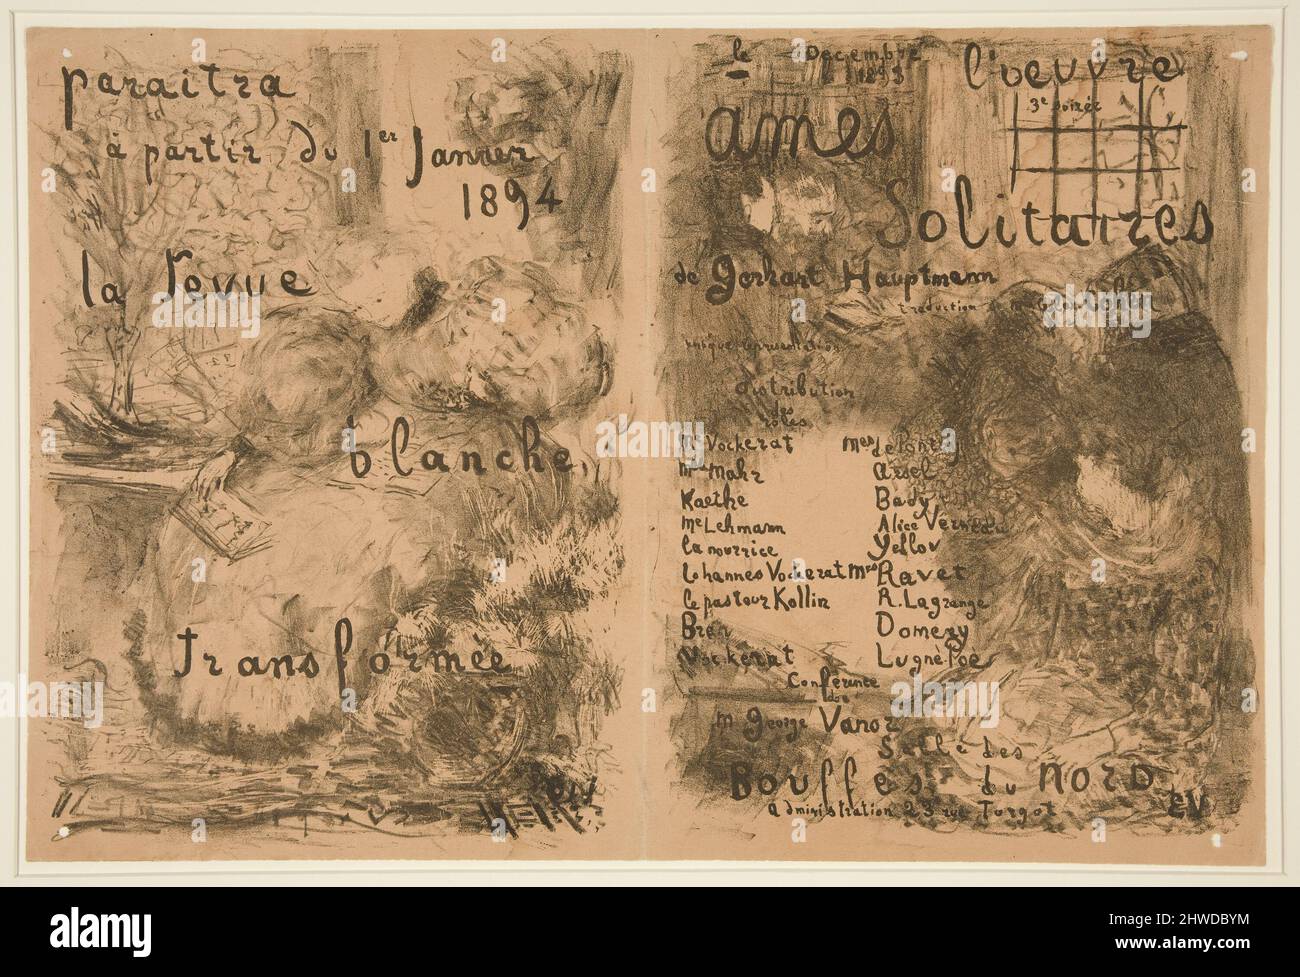 paraitra
à partir du 1er Janvier
1894
la revue
blanche
transformée
le Decembre
1893
l'oeuvre
3e soirée
ames
Solitaires
de Gerhart Hauptmann
traduction
unique representation
distribution
des
roles
Me Vockerat Mes
Mahr
Kaethe Bady
Me Lehmann Alice Verneau
la nourrice
Johannes Vockerat Mrs Ravet
le pasteur Kollin R. Lagrange
Domeny
Vockerat Lugné Poe
Conférence
de
M George Vanor
Salle des
Bouffes du NORD
administration 23 rue Turgot
EV
alamy
Image ID: 2HWDBYM
www.alamy.com